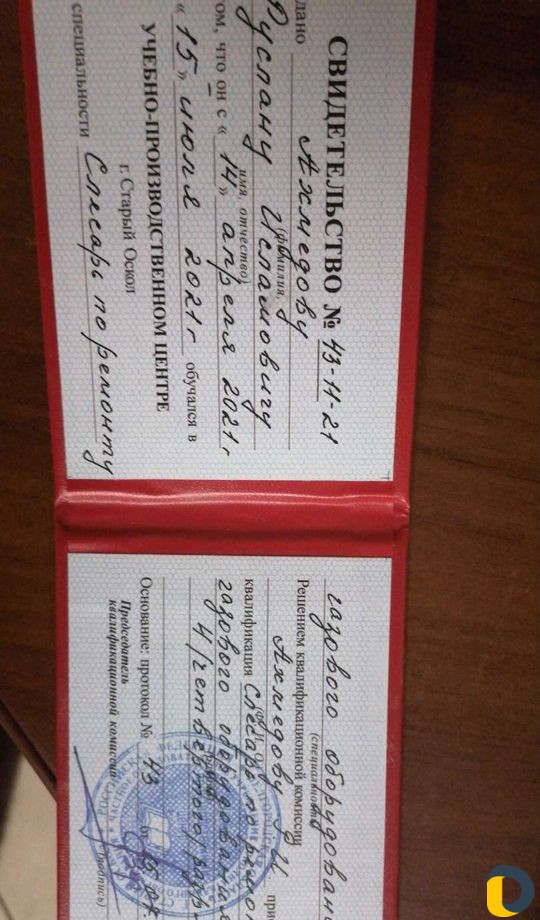 СВИДЕТЕЛЬСТВО № 43-11-21
дано Ахмедову
(фамилия,
Руслану Исламовичу
имя, отчество)
том, что он с « 14 » апреля 2021г
« 15 » июля 2021г обучался в
УЧЕБНО-ПРОИЗВОДСТВЕННОМ ЦЕНТРЕ
г. Старый Оскол
специальности Слесарь по ремонту
газового оборудован
(специальность)
Решением квалификационной комиссии
Ахмедову
квалификация Слесарь по ремон
газового оборудования
4/четвертого/разр
Основание: протокол № 43 от
Председатель
квалификационной комиссии
(подпись)